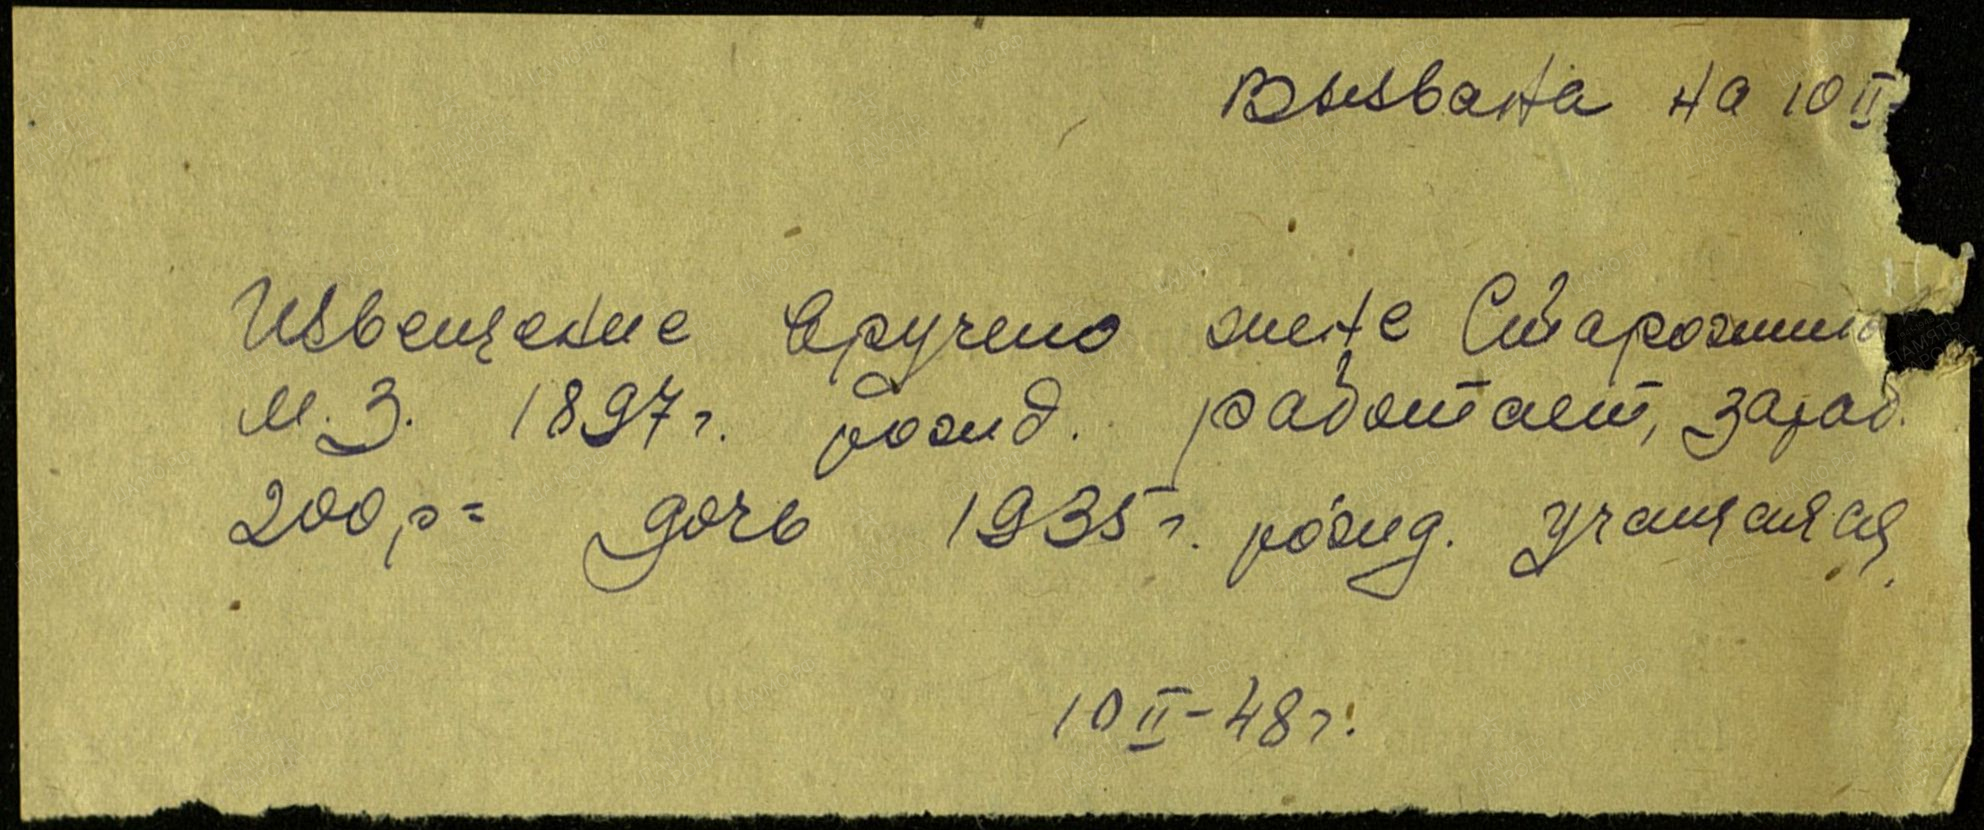 Вызвана на 10 II
Извещение вручено жене
М.З. 1897 г. рожд. работает, зараб.
200 р= дочь 1935 г. рожд. учащаяся.
10 II-48 г.